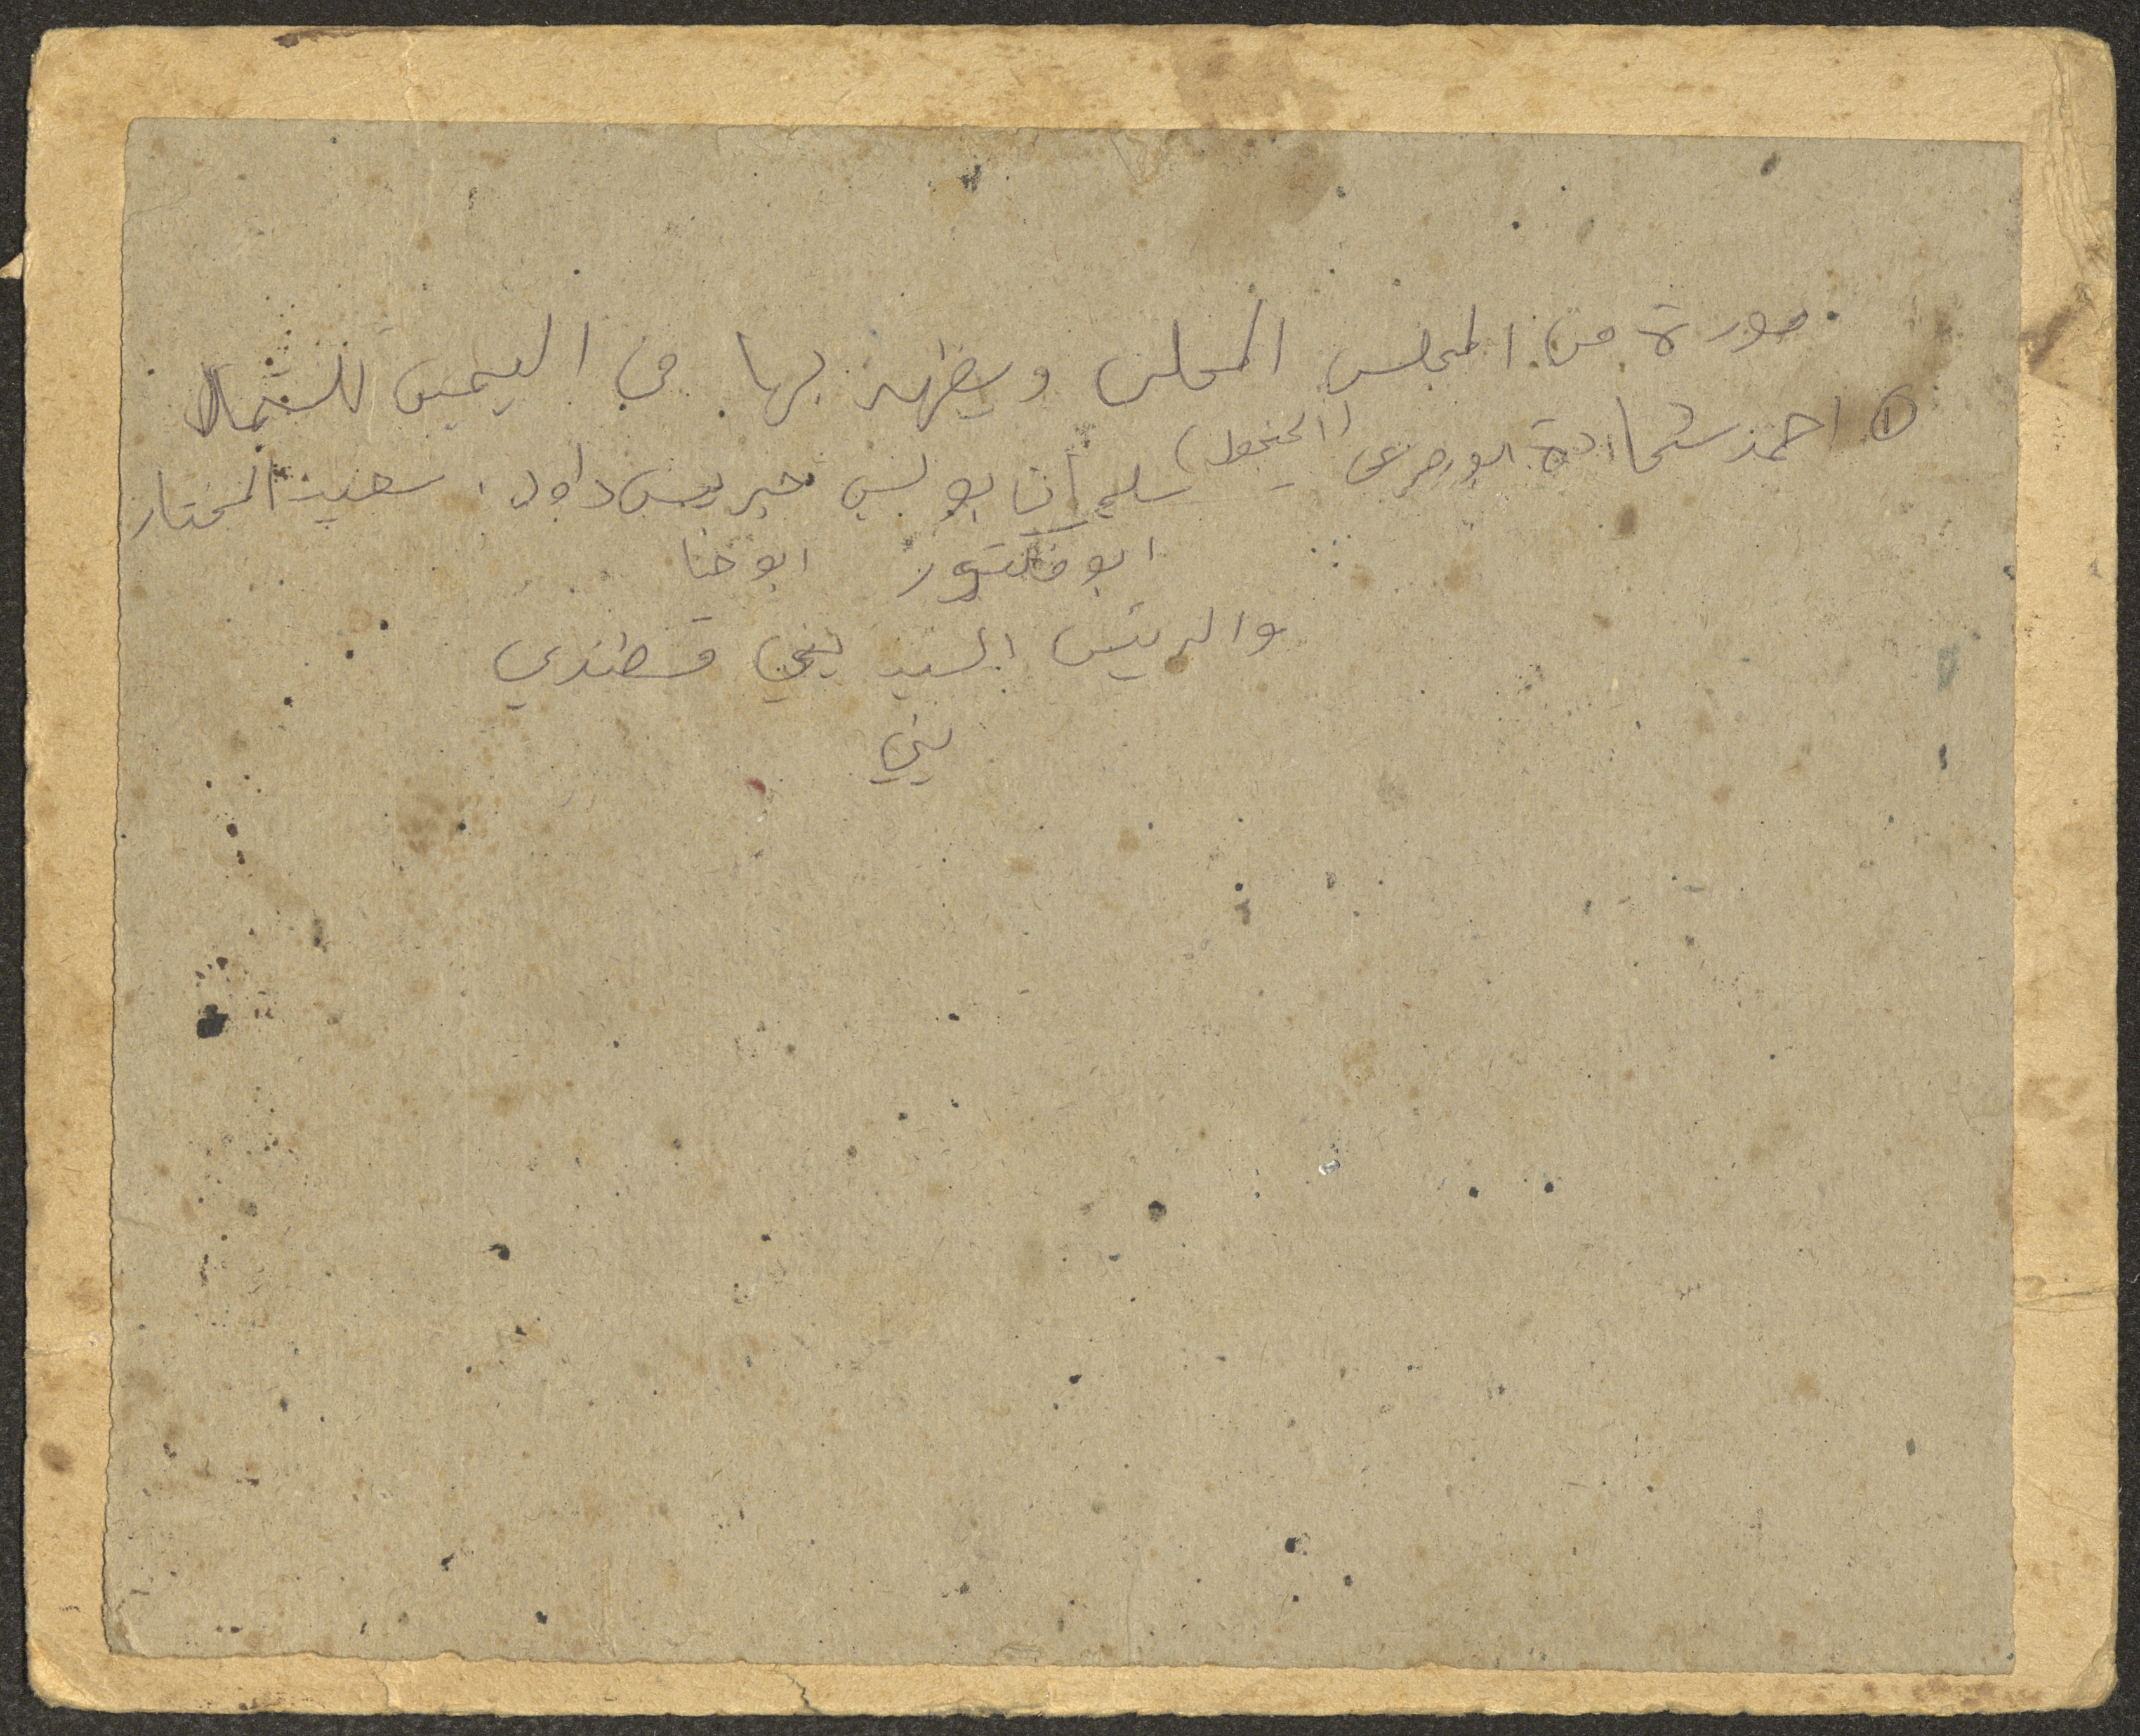 صورة من المجلس المحلي ويظهر بها من اليمين للشمال
① احمد شحادة ابو مرعي (الجنجول) سليمان بولس جريس داود . سعيد المختار
ابو فكتور ابو حنا
والريس السيد يني قسطندي
يني